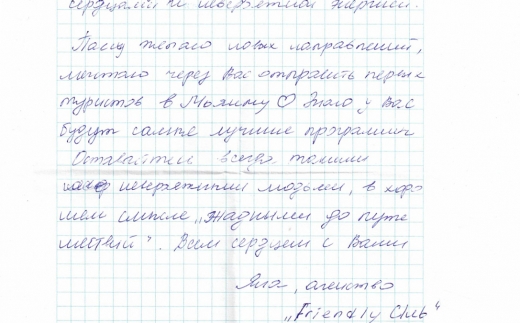 сердцами и невероятной энергией.
Пасид желаю новых направлений,
мечтаю через Вас отправить первых
туристов в Мьянму ♡ Знаю у Вас
будут самые лучшие программы
Оставайтесь всегда такими
невероятными людьми, в хоро
шем смысле „жадными до путе
шествий". Всем сердцем с Вами
Яна, агенство
„Friendly Club"